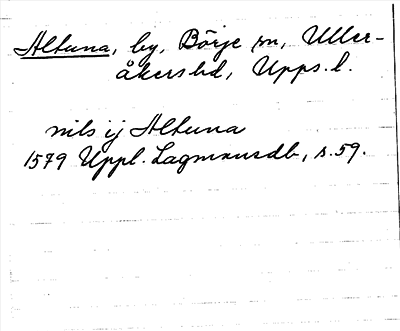 Altuna, by, Börje sn, Uller-
åkers hd, Upps. l.
nils ij Altuna
1579 Uppl. Lagmansdb, s. 59.